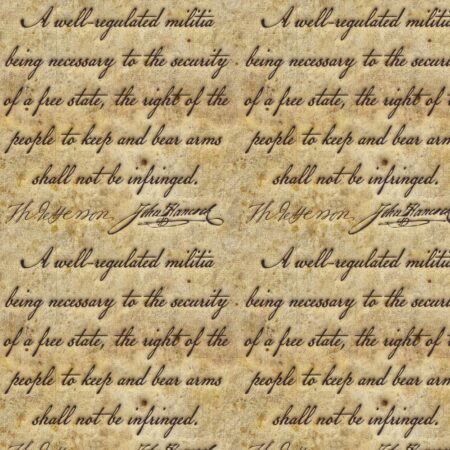 A well-regulated militia
being necessary to the security
of a free state, the right of the
people to keep and bear arms
shall not be infringed.
Th Jefferson John Hancock
A well-regulated militia
being necessary to the security
of a free state, the right of the
people to keep and bear arms
shall not be infringed.
Th Jefferson John Hancock
A well-regulated militia
being necessary to the security
of a free state, the right of
people to keep and bear arms
shall not be infringed.
Th Jefferson John
A well-regulated militia
being necessary to the security
of a free state, the right of
people to keep and bear arms
shall not be infringed.
Th Jefferson John